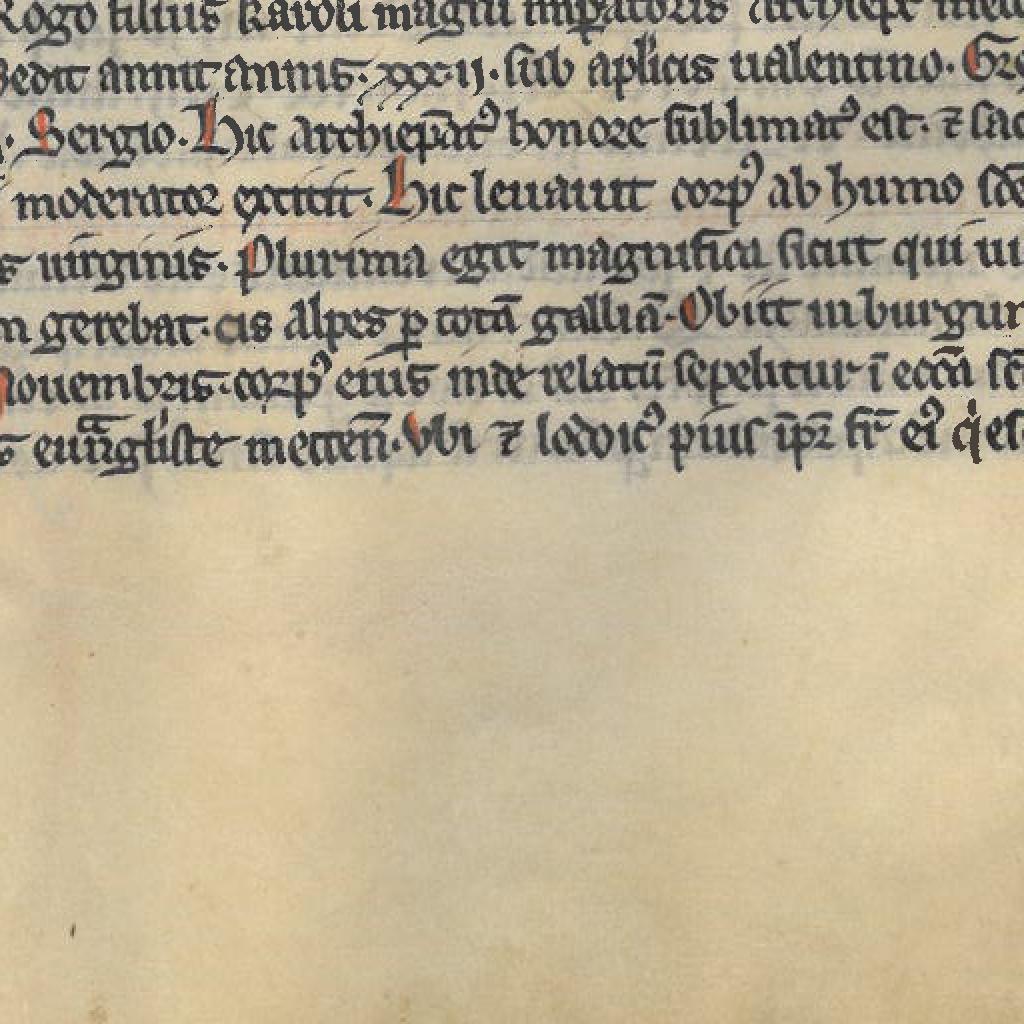 Rogo filius karoli magni impatoris Archiepc
sedit annis xxxii. sub aplicis ualentino. Gre
Sergio. Hic archiepat⁹ honore sublimat⁹ est. ⁊ sac
moderator extitit. Hic leuauit corp⁹ ab humo
uirginis. Plurima egit magnifica sicut qui ui
gerebat. cis Alpes p totā galliā. Obiit in burgun
Nouembris. corp⁹ eius inde relatū sepelitur ī eccā sc̄
metten̄. Vbi ⁊ lodoic⁹ pius ip̄r fr̄ ei⁹